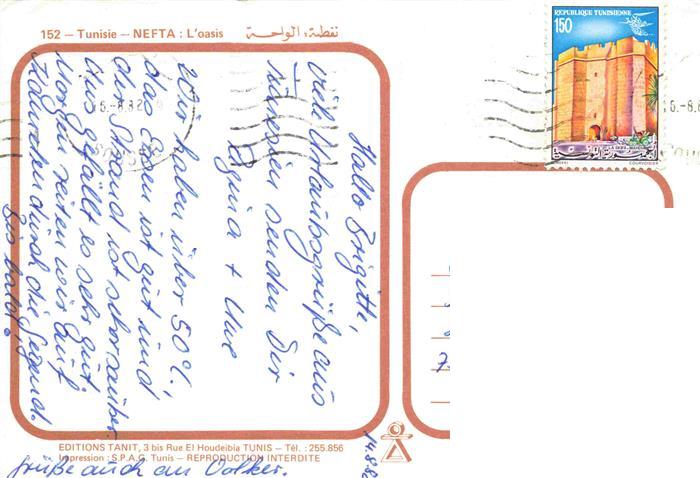 152 – Tunisie – NEFTA : L'oasis نفطة: الواحة
REPUBLIQUE TUNISIENNE
150
COURVOISIER
5.-8.82
6.-8.8
14.8.82
Hallo Brigitte,
viele Urlaubsgrüße aus
Tunesien senden Dir
+ Uwe
Wir haben über 50°C,
das Essen ist gut und
der Strand ist sehr sauber.
Uns gefällt es sehr gut
Morgen reiten wir auf
durch die Gegend.
Bis bald!
Grüße auch an Volker.
EDITIONS TANIT, 3 bis Rue El Houdeibia TUNIS – Tél. : 255.856
Impression : S.P.A.G. Tunis – REPRODUCTION INTERDITE